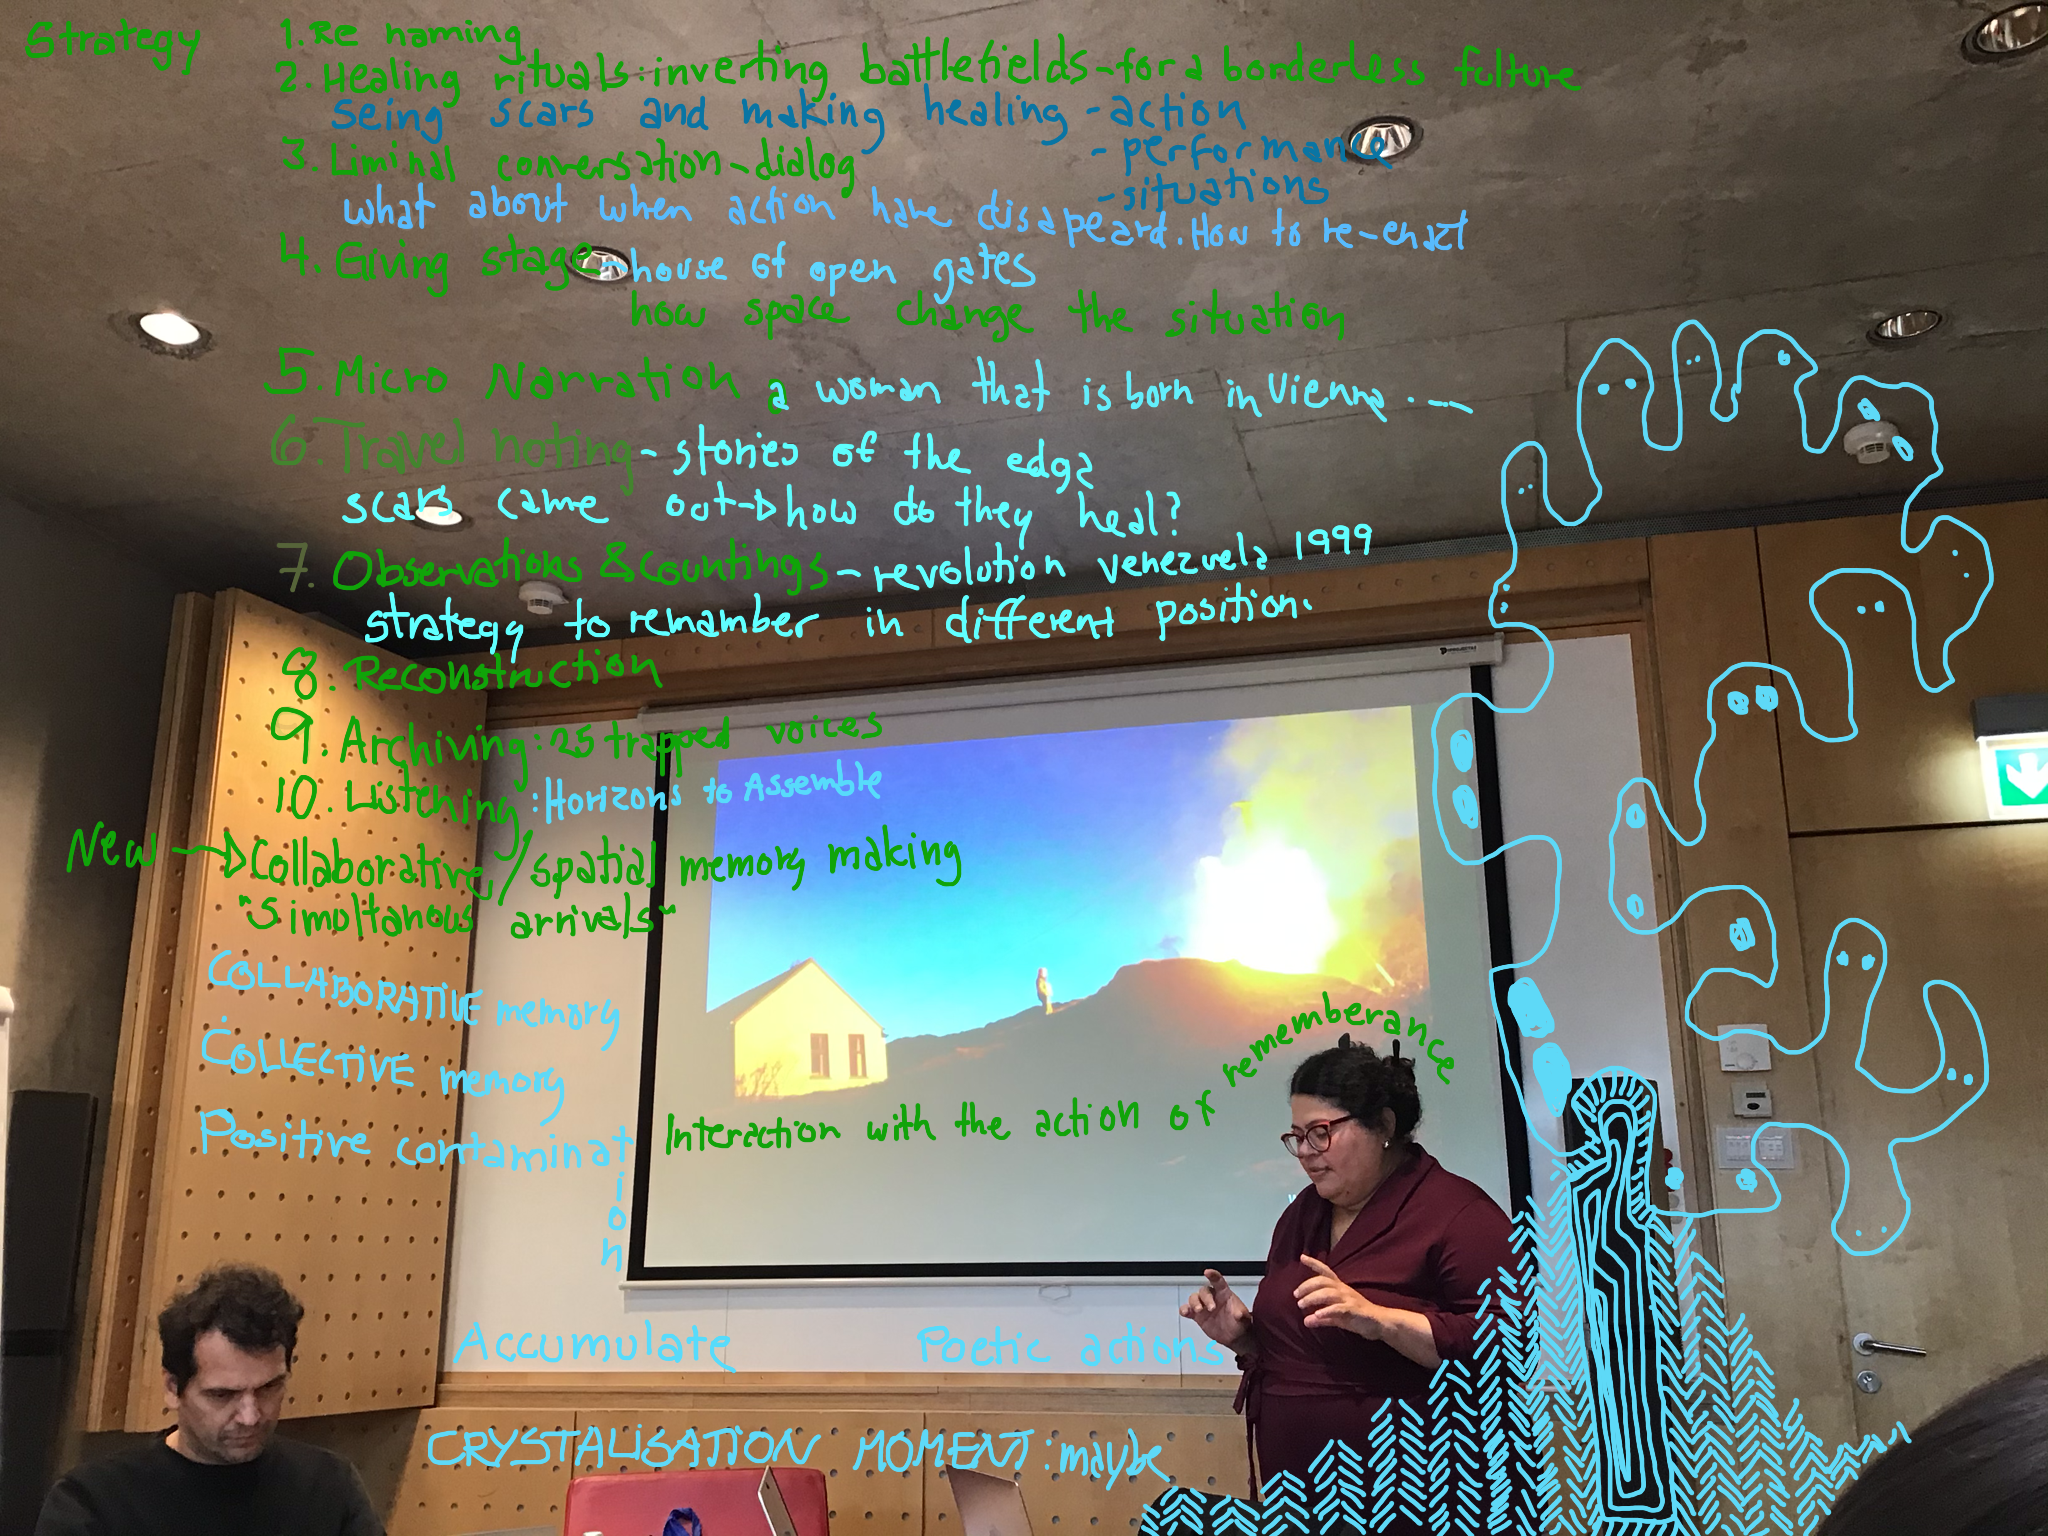 Strategy
1. Re naming
2. Healing rituals: inverting battlefields - for a borderless fulture
seing scars and making healing - action
- performance
- situations
3. Liminal conversation - dialog
what about when action have disapeard. How to re-enact
4. Giving stage - house of open gates
how space change the situation
5. Micro Narration a woman that is born in Vienna . --
6. Travel noting - stories of the edge
scars came out → how do they heal?
7. Observations & countings - revolution venezuela 1999
strategy to remamber in different position.
8. Reconstruction
9. Archiving: 25 trapped voices
10. Listening: Horizons to Assemble
New → Collaborative, / spatial memory making
"Simoltanous arrivals"
COLLABORATIVE memory
COLLECTIVE memory
Positive contamination
Interaction with the action of rememberance
Accumulate Poetic actions
CRYSTALISATION MOMENT: maybe